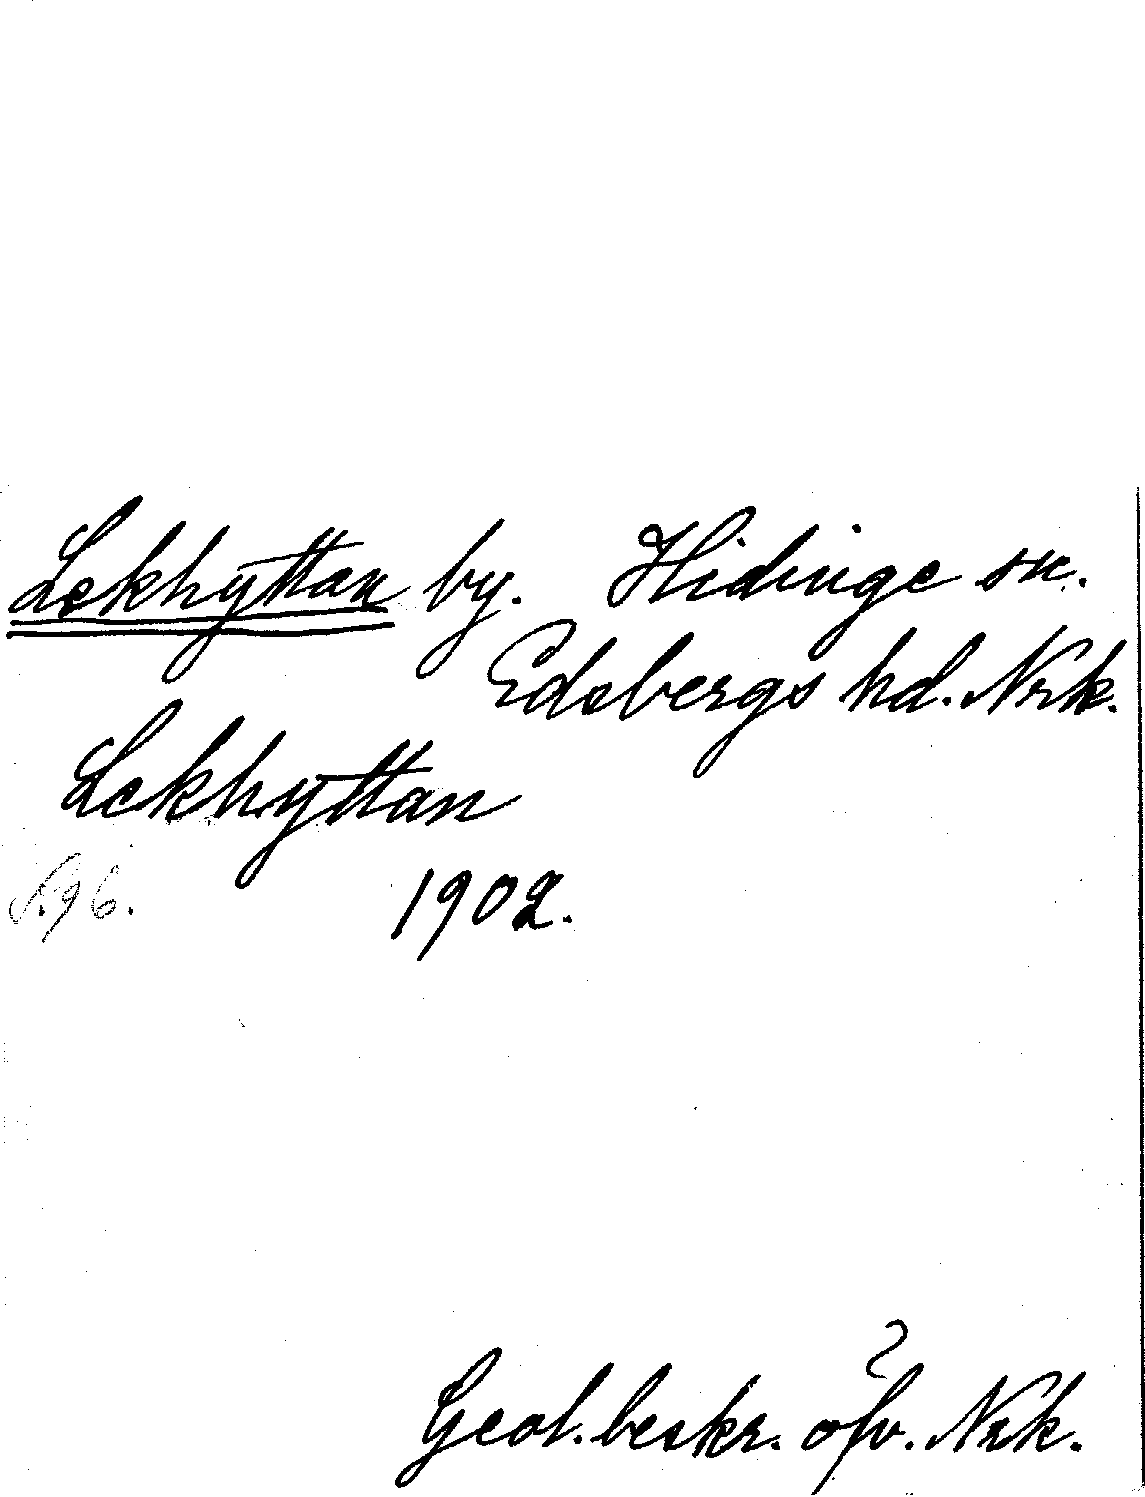 Lekhyttan by. Hidinge sn.
Edsbergs hd. Nrk.
Lekhyttan
S. 96. 1902.
Geol. beskr. öfv. Nrk.